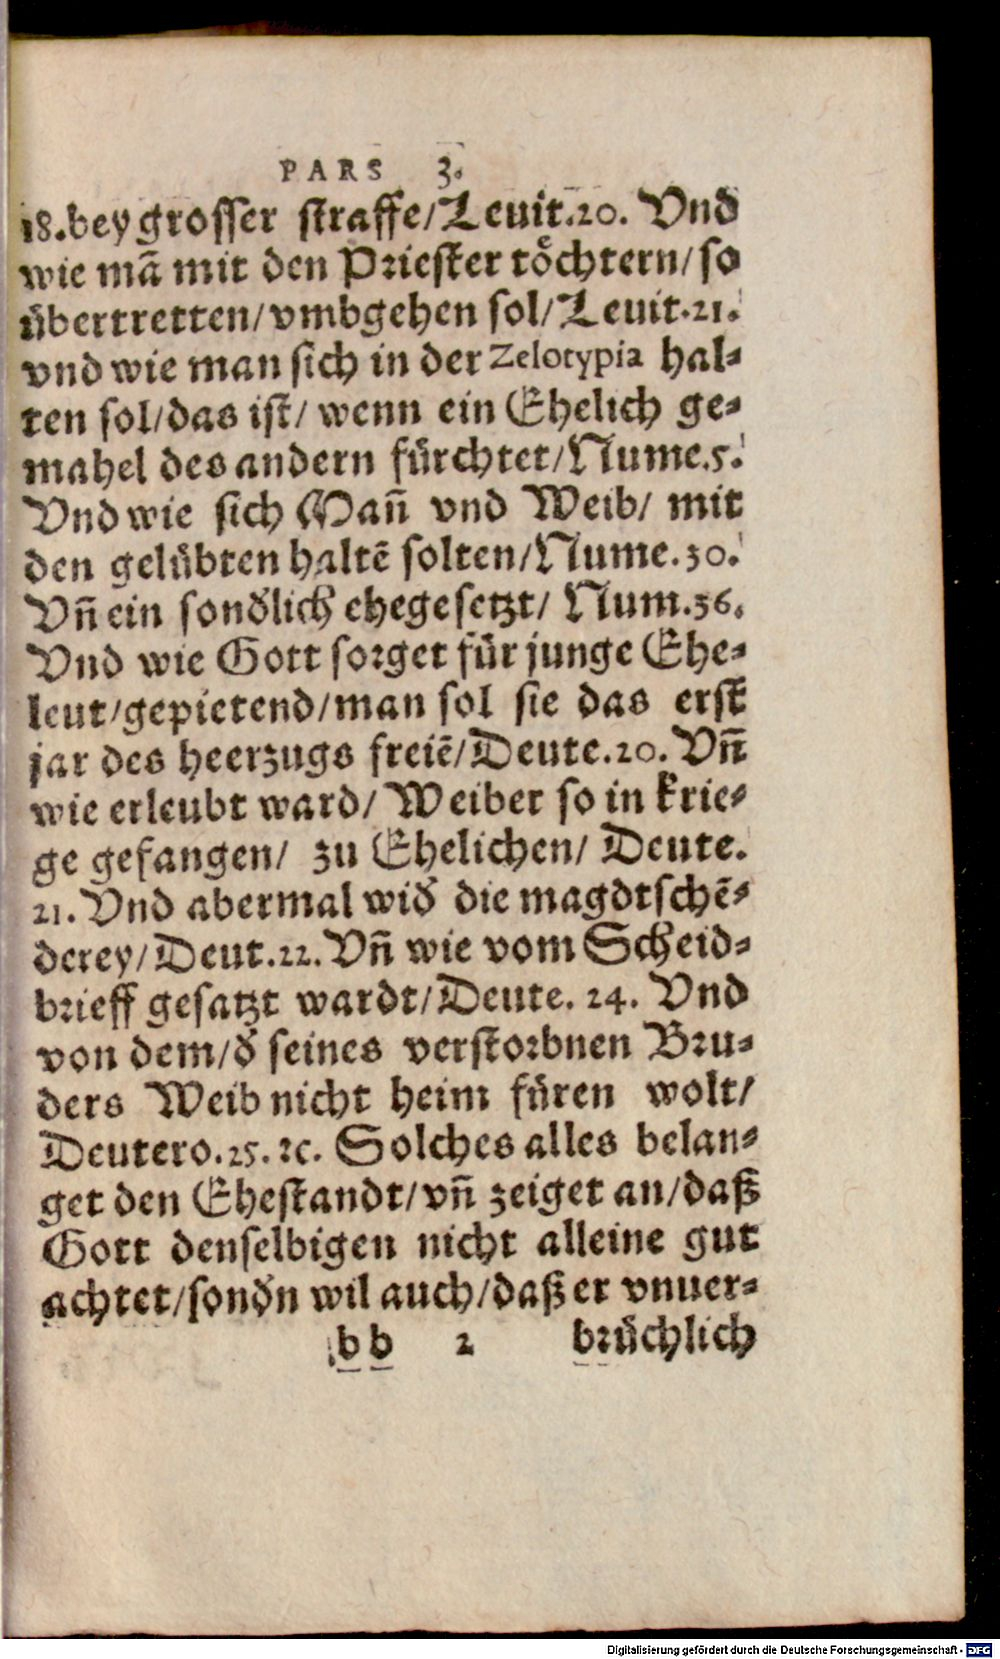 PARS 3.
18. bey grosser straffe/ Leuit. 20. Vnd
wie mã mit den Priester töchtern/ so
übertretten/ vmbgehen sol/ Leuit. 21.
vnd wie man sich in der Zelotypia hal-
ten sol/ das ist/ wenn ein Ehelich ge-
mahel des andern fürchtet/ Nume. 5.
Vnd wie sich Mañ vnd Weib/ mit
den gelübten haltẽ solten/ Nume. 30.
Vñ ein sondďlich ehegesetzt/ Num. 36.
Vnd wie Gott sorget für junge Ehe-
leut/ gepietend/ man sol sie das erst
jar des heerzugs freiẽ/ Deute. 20. Vñ
wie erleubt ward/ Weiber so in krie-
ge gefangen/ zu Ehelichen/ Deute.
21. Vnd abermal wiď die magdtschẽ-
derey/ Deut. 22. Vñ wie vom Scheid-
brieff gesatzt wardt/ Deute. 24. Vnd
von dem/ ď seines verstorbnen Bru-
ders Weib nicht heim füren wolt/
Deutero. 25. ꝛc. Solches alles belan-
get den Ehestandt/ vñ zeiget an/ daß
Gott denselbigen nicht alleine gut
achtet/ sonďn wil auch/ daß er vnuer-
bb 2 brüchlich
Digitalisierung gefördert durch die Deutsche Forschungsgemeinschaft - DFG